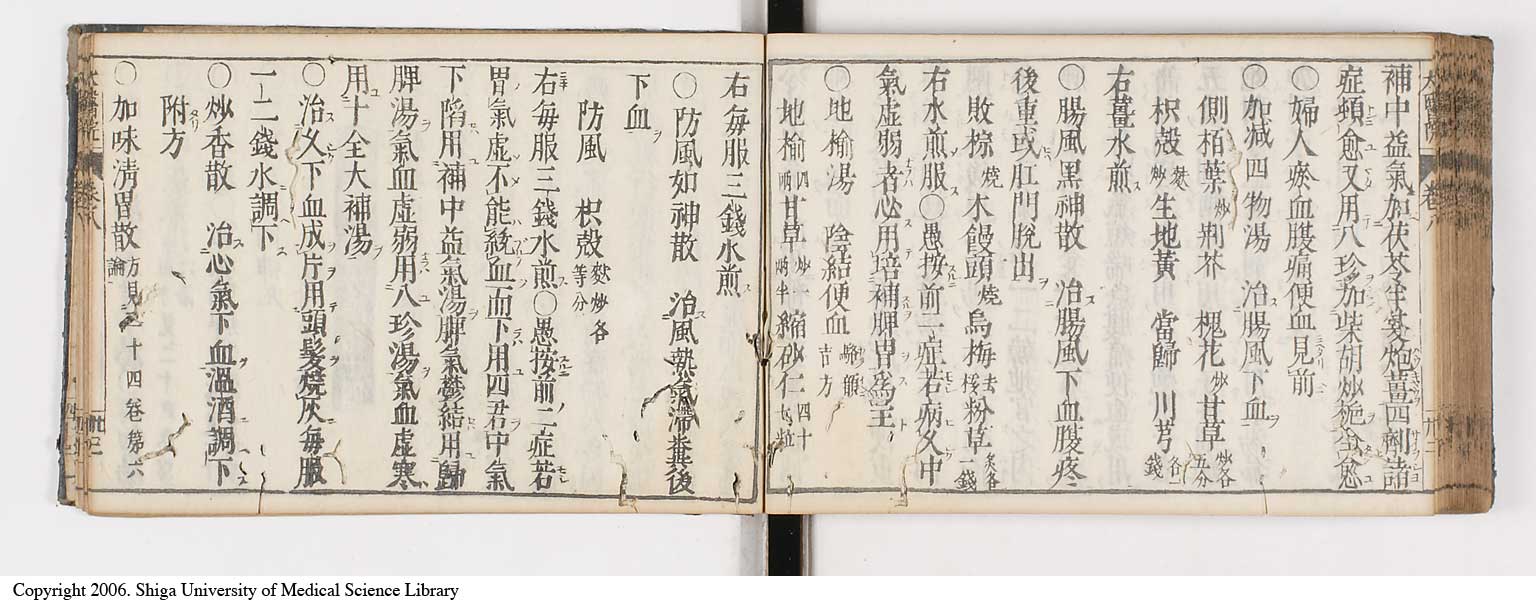 補中益氣加茯苓半夏炮薑四劑諸
症頓愈又用八珍加柴胡炒梔全愈
〇婦人瘀血腹痛便血見前
〇加減四物湯 治腸風下血
側栢葉炒荆芥 槐花炒甘草炒各五分
枳殼麩炒生地黃 當歸 川芎各一錢
右薑水煎
〇腸風黑神散 治腸風下血腹疼
後重或肛門脫出
敗椶燒木饅頭燒烏梅去核粉草炙各二錢
右水煎服〇愚按前二症若病久中
氣虛弱者必用培補脾胃爲主
〇地榆湯 陰結便血
地榆四兩甘草炒半兩縮砂仁四十七粒
右每服三錢水煎
〇防風如神散 治風熱氣滯糞後
下血
防風 枳殼麩炒各等分
右每服三錢水煎〇愚按前二症若
胃氣虛不能統血而下用四君中氣
下陷用補中益氣湯脾氣鬱結用歸
脾湯氣血虛弱用八珍湯氣血虛寒
用十全大補湯
〇治久下血成片用頭髮燒灰每服
一二錢水調下
〇炒香散 治心氣下血溫酒調下
附方
〇加味淸胃散方見二十四卷第六論
卷八
Copyright 2006. Shiga University of Medical Science Library